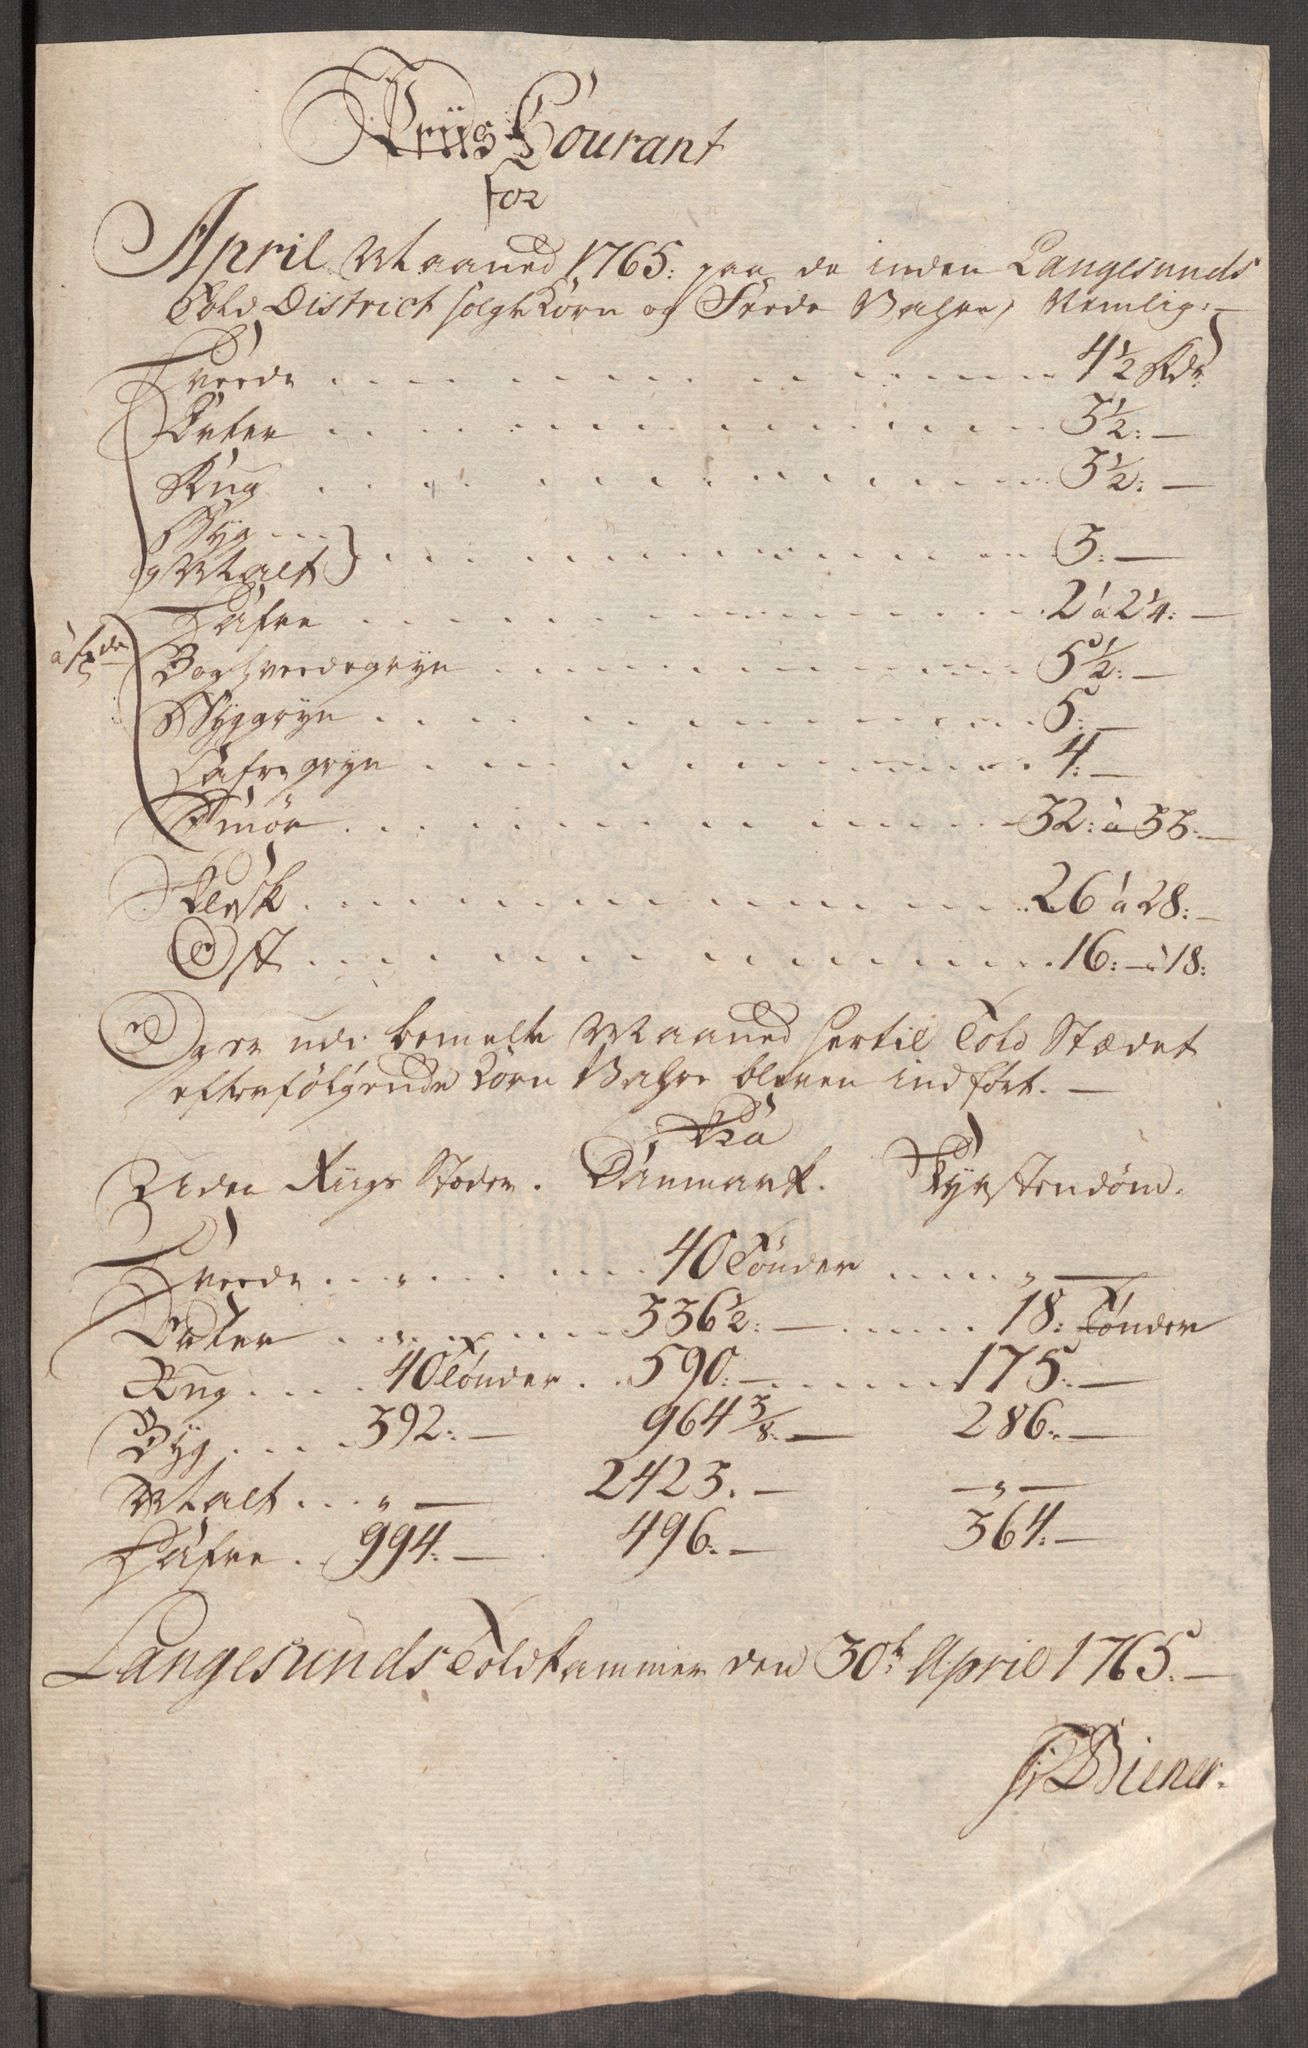 Priis Courant
for
April Maaned 1765: paa de inden Langesunds
Told District solgte Korn og Feede Vahre, Nemlig:
Hveede . . . 4½ Rdr
Erter . . . 3½: —
Rug . . . 3½: —
Byg . . .
og Malt } . . . 3: —
Hafre . . . 2 à 2¼: —
à Tde
Boghveedegryn . . . 5½: —
Byggryn . . . 5: —
Hafregryn . . . 4: —
Smör . . . 32: à 33: —
Flesk . . . 26 à 28: —
Ost . . . 16: — à 18:
Og er udi bemelte Maaned hertil Told Stædet
efterfölgende Korn Vahre bleven indfört. —
Fra
Uden Riigs Stæder. Danmark. Fyrstendöm.
Hveede . . . „ . . . 40 Tönder . . . „ —
Erter . . . „ . . . 336½: — . . . 18: Tönder
Rug . . . 40 Tönder . . 590: — . . . 175: —
Byg . . . 392: — 964 3/8: — 286: —
Malt . . . „ — 2423. — — „ —
Hafre . . 994: — 496: — 364: —
Langesunds Toldkammer den 30t April 1765. —
Biener.